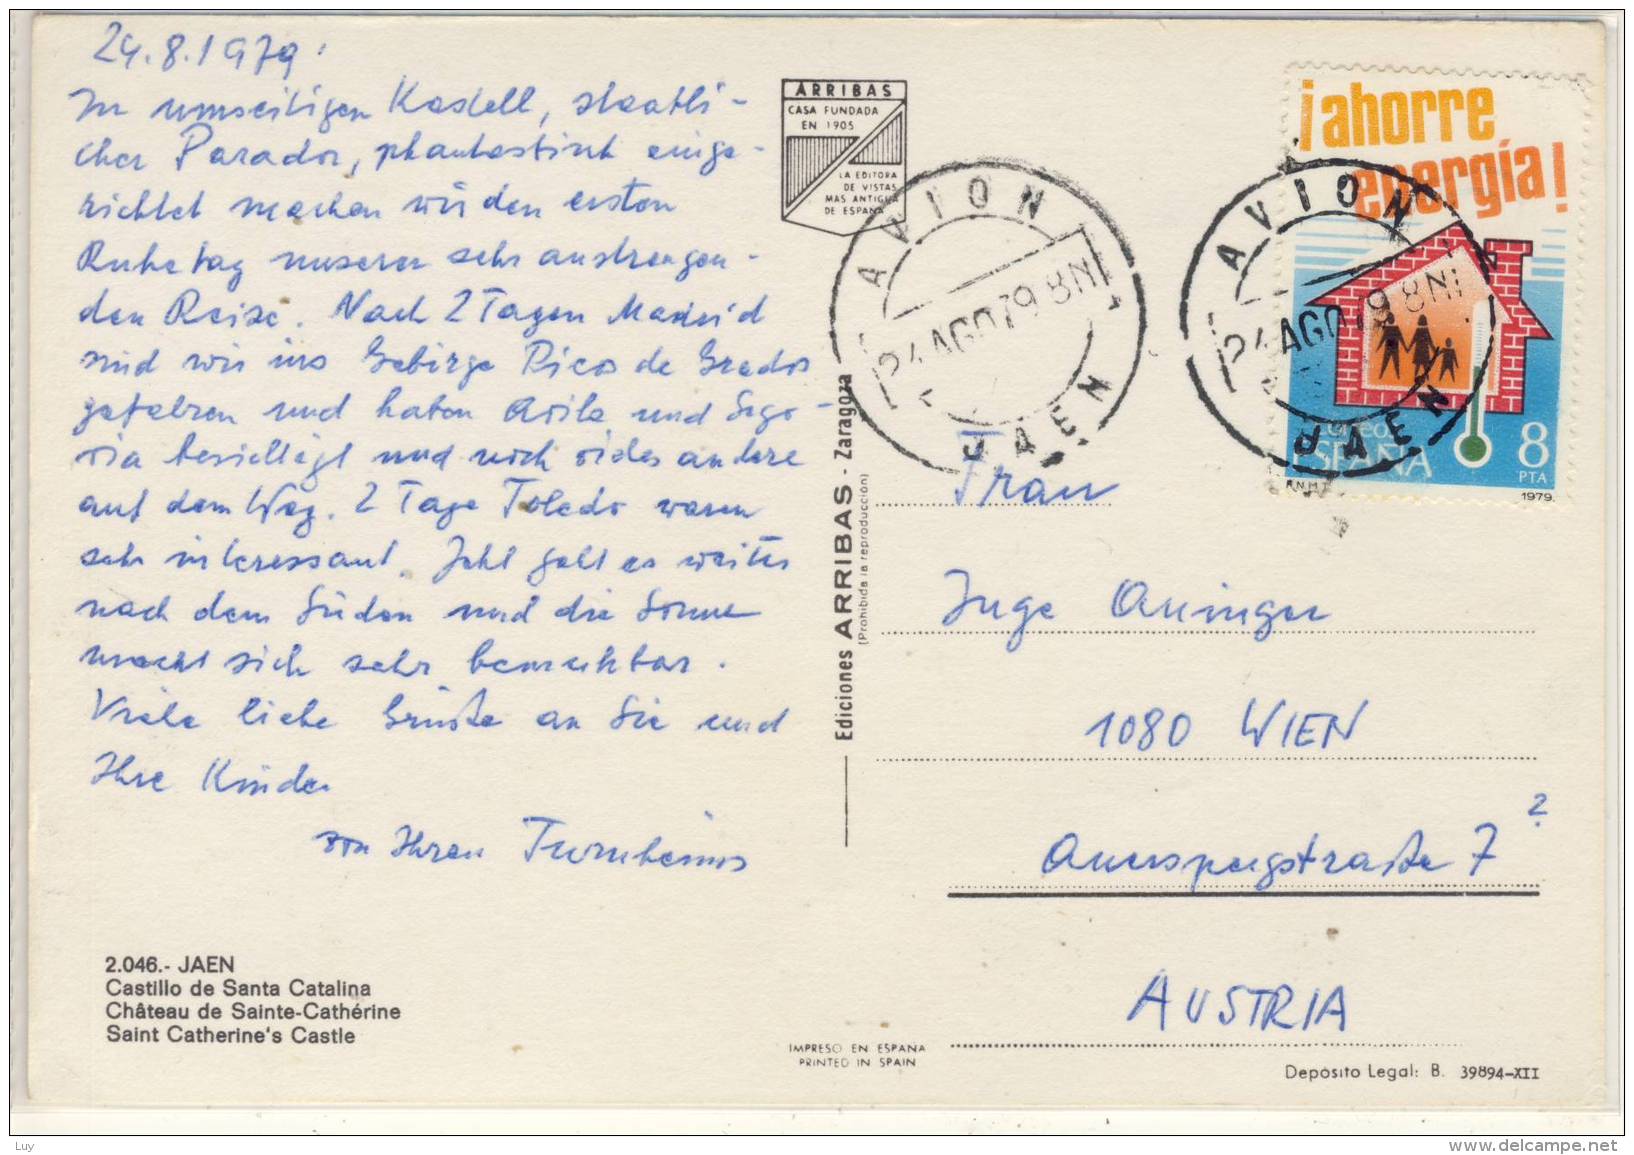 24.8.1979.
Im umseitigen Kastell, staatli-
cher Parador, phantastisch einge-
richtet machen wir den ersten
Ruhetag unserer sehr anstrengen-
den Reise. Nach 2 Tagen Madrid
sind wir ins Gebirge Picos de Gredos
gefahren und haben Avila und Sego-
via besichtigt und noch vieles andere
auf dem Weg. 2 Tage Toledo waren
sehr interessant. Jetzt geht es weiter
nach dem Süden und die Sonne
macht sich sehr bemerkbar.
Viele liebe Grüße an Sie und
Ihre Kinder
von Ihren
2.046.- JAEN
Castillo de Santa Catalina
Château de Sainte-Cathérine
Saint Catherine's Castle
ARRIBAS
CASA FUNDADA
EN 1905
LA EDITORA
DE VISTAS
MAS ANTIGUA
DE ESPAÑA
Ediciones ARRIBAS - Zaragoza
(Prohibida la reproducción)
AVION
24 AGO 79 8 N
JAEN
¡ahorre
energía!
AVION
24 AGO 79 8 N
JAEN
correos
ESPAÑA
8
PTA
F.N.M.T.
1979
Frau
Inge Auinger
1080 WIEN
Auerspergstraße 7
?
AUSTRIA
IMPRESO EN ESPAÑA
PRINTED IN SPAIN
Depósito Legal: B. 39894-XII
Luy
www.delcampe.net